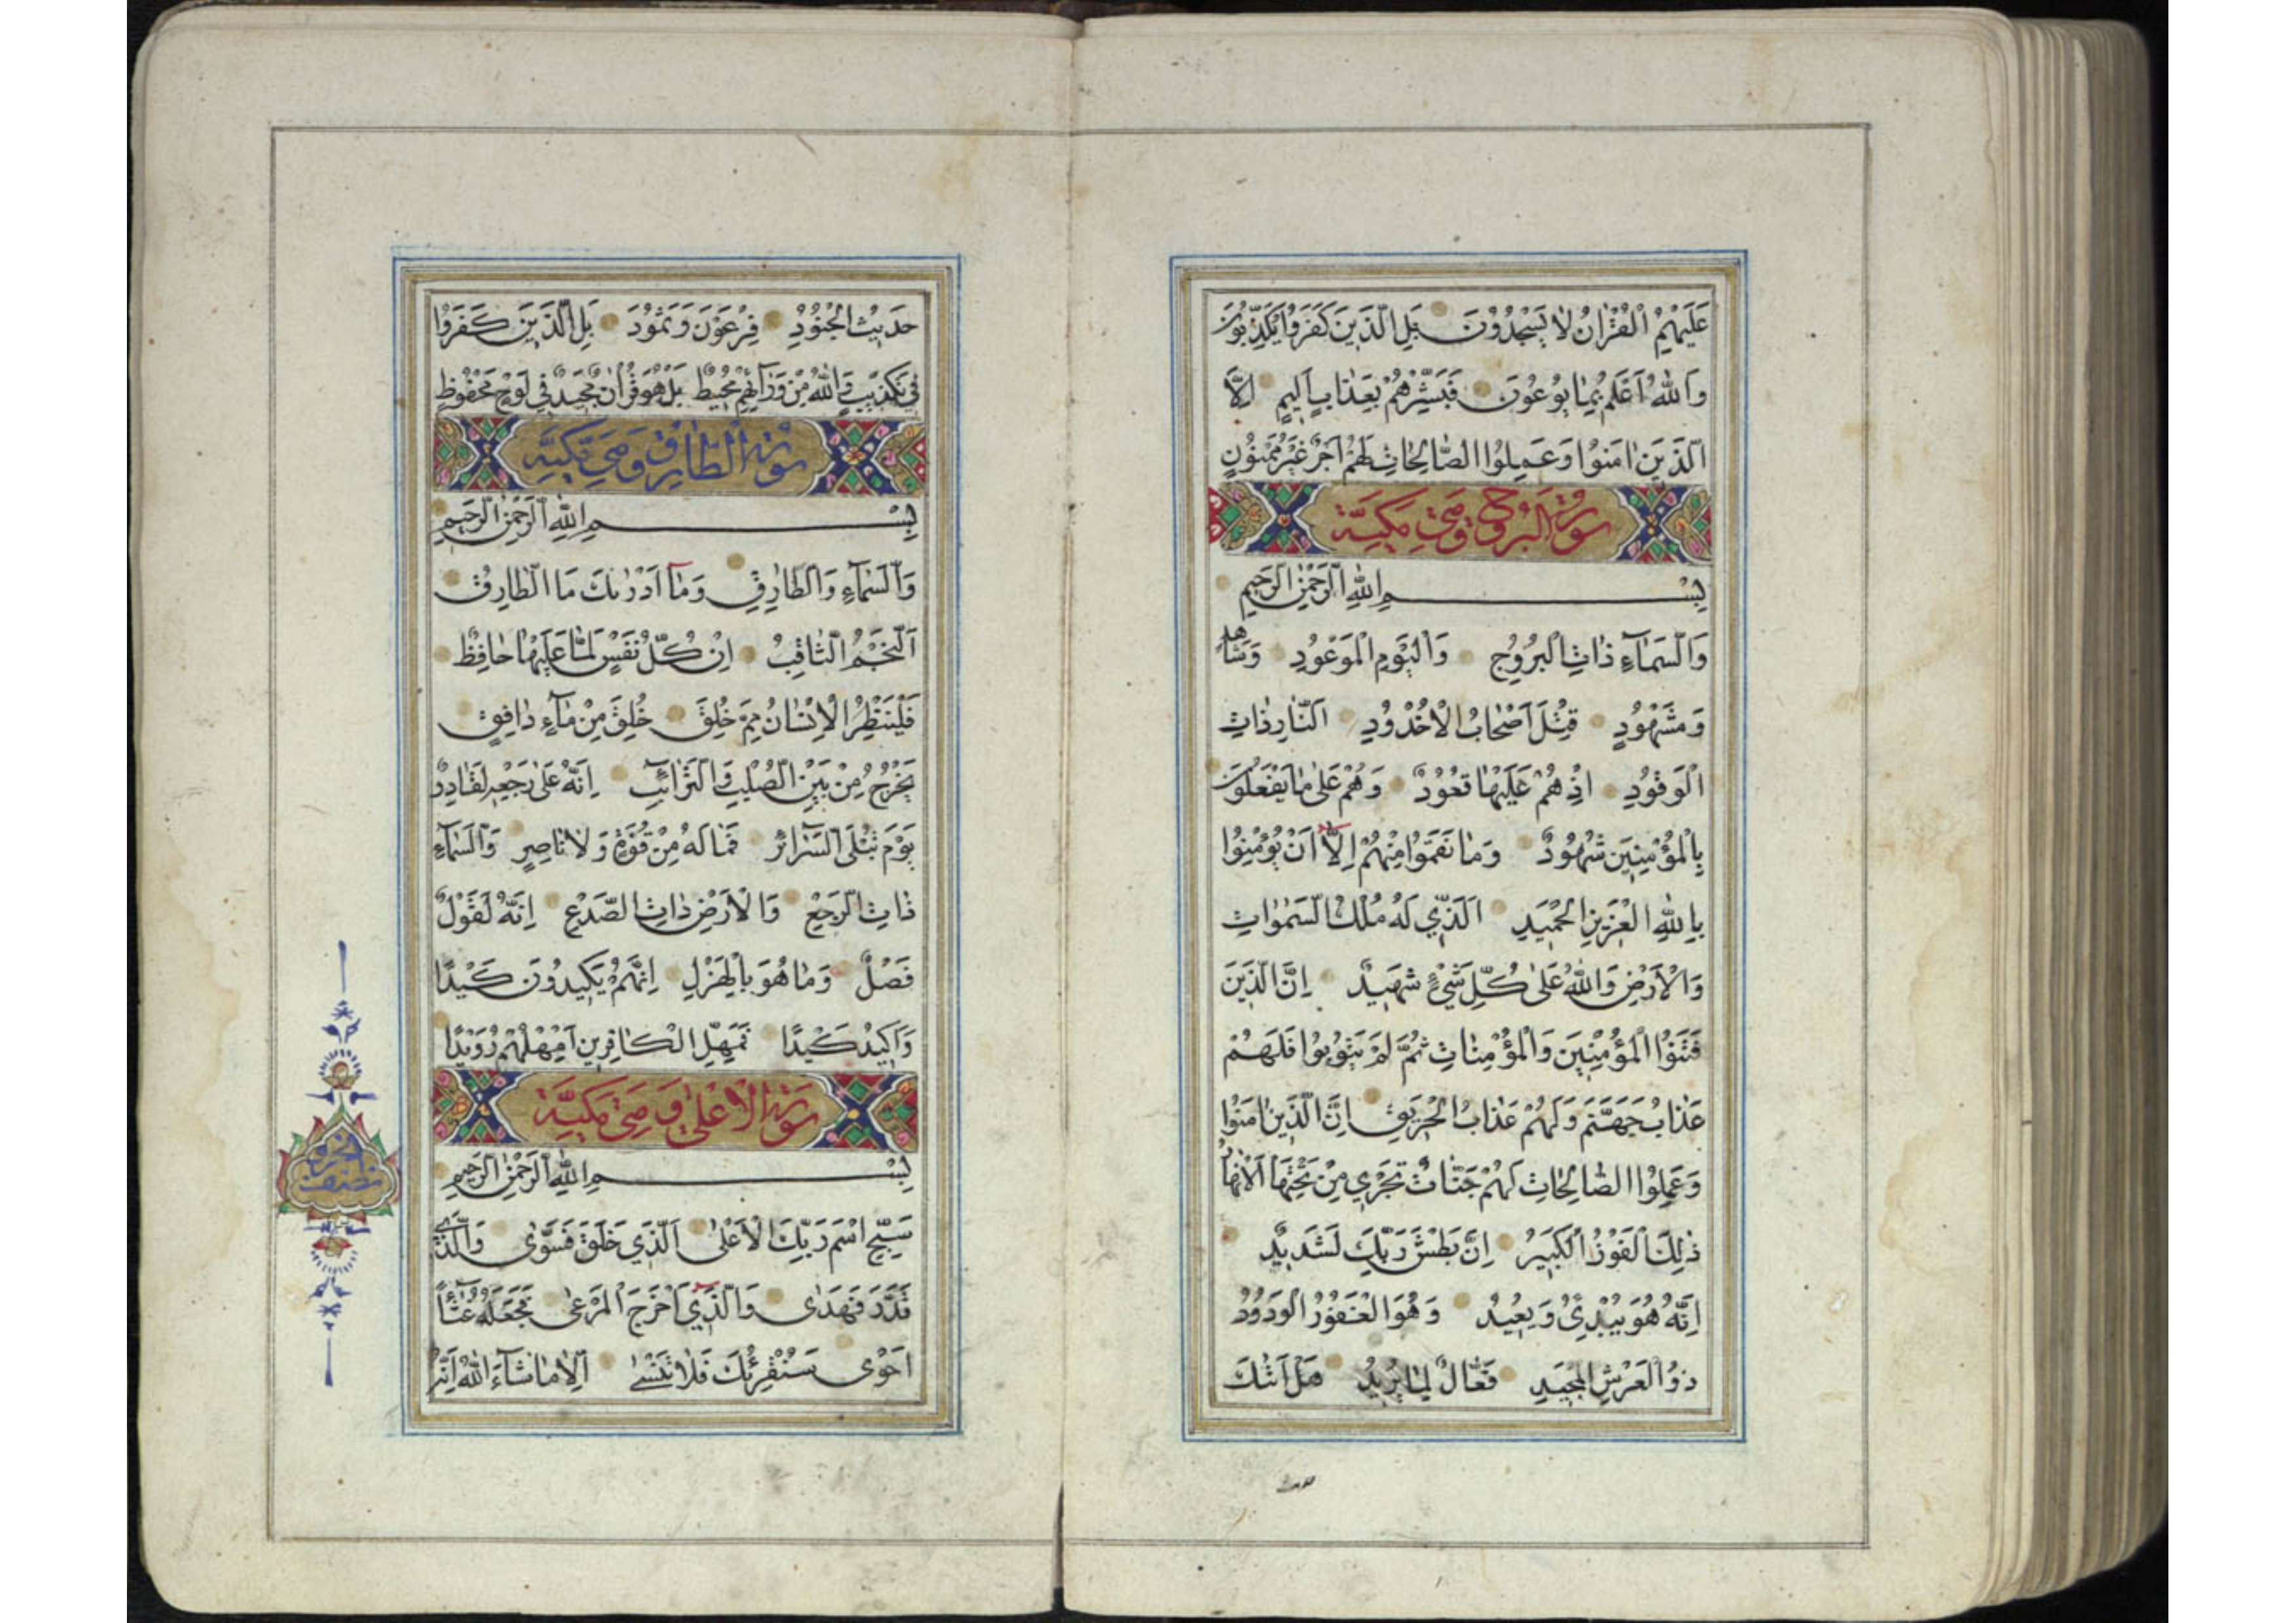 عَلَيْهِمُ الْقُرْاٰنُ لَا يَسْجُدُوْنَ بَلِ الَّذِيْنَ كَفَرُوْا يُكَذِّبُوْنَ
وَاللّٰهُ اَعْلَمُ بِمَا يُوْعُوْنَ فَبَشِّرْهُمْ بِعَذَابٍ اَلِيْمٍ اِلَّا
الَّذِيْنَ اٰمَنُوْا وَعَمِلُوا الصَّالِحَاتِ لَهُمْ اَجْرٌ غَيْرُ مَمْنُوْنٍ
سورة البروج وهي مكية
بِسْمِ اللّٰهِ الرَّحْمٰنِ الرَّحِيْمِ
وَالسَّمَآءِ ذَاتِ الْبُرُوْجِ وَالْيَوْمِ الْمَوْعُوْدِ وَشَاهِدٍ
وَمَشْهُوْدٍ قُتِلَ اَصْحَابُ الْاُخْدُوْدِ النَّارِ ذَاتِ
الْوَقُوْدِ اِذْ هُمْ عَلَيْهَا قُعُوْدٌ وَهُمْ عَلٰى مَا يَفْعَلُوْنَ
بِالْمُؤْمِنِيْنَ شُهُوْدٌ وَمَا نَقَمُوْا مِنْهُمْ اِلَّا اَنْ يُؤْمِنُوْا
بِاللّٰهِ الْعَزِيْزِ الْحَمِيْدِ الَّذِيْ لَهُ مُلْكُ السَّمٰوَاتِ
وَالْاَرْضِ وَاللّٰهُ عَلٰى كُلِّ شَيْءٍ شَهِيْدٌ اِنَّ الَّذِيْنَ
فَتَنُوا الْمُؤْمِنِيْنَ وَالْمُؤْمِنَاتِ ثُمَّ لَمْ يَتُوْبُوْا فَلَهُمْ
عَذَابُ جَهَنَّمَ وَلَهُمْ عَذَابُ الْحَرِيْقِ اِنَّ الَّذِيْنَ اٰمَنُوْا
وَعَمِلُوا الصَّالِحَاتِ لَهُمْ جَنَّاتٌ تَجْرِيْ مِنْ تَحْتِهَا الْاَنْهَارُ
ذٰلِكَ الْفَوْزُ الْكَبِيْرُ اِنَّ بَطْشَ رَبِّكَ لَشَدِيْدٌ
اِنَّهُ هُوَ يُبْدِئُ وَيُعِيْدُ وَهُوَ الْغَفُوْرُ الْوَدُوْدُ
ذُو الْعَرْشِ الْمَجِيْدِ فَعَّالٌ لِمَا يُرِيْدُ هَلْ اَتٰىكَ
حَدِيْثُ الْجُنُوْدِ فِرْعَوْنَ وَثَمُوْدَ بَلِ الَّذِيْنَ كَفَرُوْا
فِيْ تَكْذِيْبٍ وَاللّٰهُ مِنْ وَرَآئِهِمْ مُحِيْطٌ بَلْ هُوَ قُرْاٰنٌ مَجِيْدٌ فِيْ لَوْحٍ مَحْفُوْظٍ
سورة الطارق وهي مكية
بِسْمِ اللّٰهِ الرَّحْمٰنِ الرَّحِيْمِ
وَالسَّمَآءِ وَالطَّارِقِ وَمَآ اَدْرٰىكَ مَا الطَّارِقُ
اَلنَّجْمُ الثَّاقِبُ اِنْ كُلُّ نَفْسٍ لَمَّا عَلَيْهَا حَافِظٌ
فَلْيَنْظُرِ الْاِنْسَانُ مِمَّ خُلِقَ خُلِقَ مِنْ مَآءٍ دَافِقٍ
يَخْرُجُ مِنْ بَيْنِ الصُّلْبِ وَالتَّرَائِبِ اِنَّهُ عَلٰى رَجْعِهِ لَقَادِرٌ
يَوْمَ تُبْلَى السَّرَآئِرُ فَمَا لَهُ مِنْ قُوَّةٍ وَلَا نَاصِرٍ وَالسَّمَآءِ
ذَاتِ الرَّجْعِ وَالْاَرْضِ ذَاتِ الصَّدْعِ اِنَّهُ لَقَوْلٌ
فَصْلٌ وَمَا هُوَ بِالْهَزْلِ اِنَّهُمْ يَكِيْدُوْنَ كَيْدًا
وَاَكِيْدُ كَيْدًا فَمَهِّلِ الْكَافِرِيْنَ اَمْهِلْهُمْ رُوَيْدًا
سورة الاعلى وهي مكية
بِسْمِ اللّٰهِ الرَّحْمٰنِ الرَّحِيْمِ
سَبِّحِ اسْمَ رَبِّكَ الْاَعْلٰى اَلَّذِيْ خَلَقَ فَسَوّٰى وَالَّذِيْ
قَدَّرَ فَهَدٰى وَالَّذِيْٓ اَخْرَجَ الْمَرْعٰى فَجَعَلَهُ غُثَآءً
اَحْوٰى سَنُقْرِئُكَ فَلَا تَنْسٰى اِلَّا مَا شَآءَ اللّٰهُ اِنَّهُ
نصف الحزب